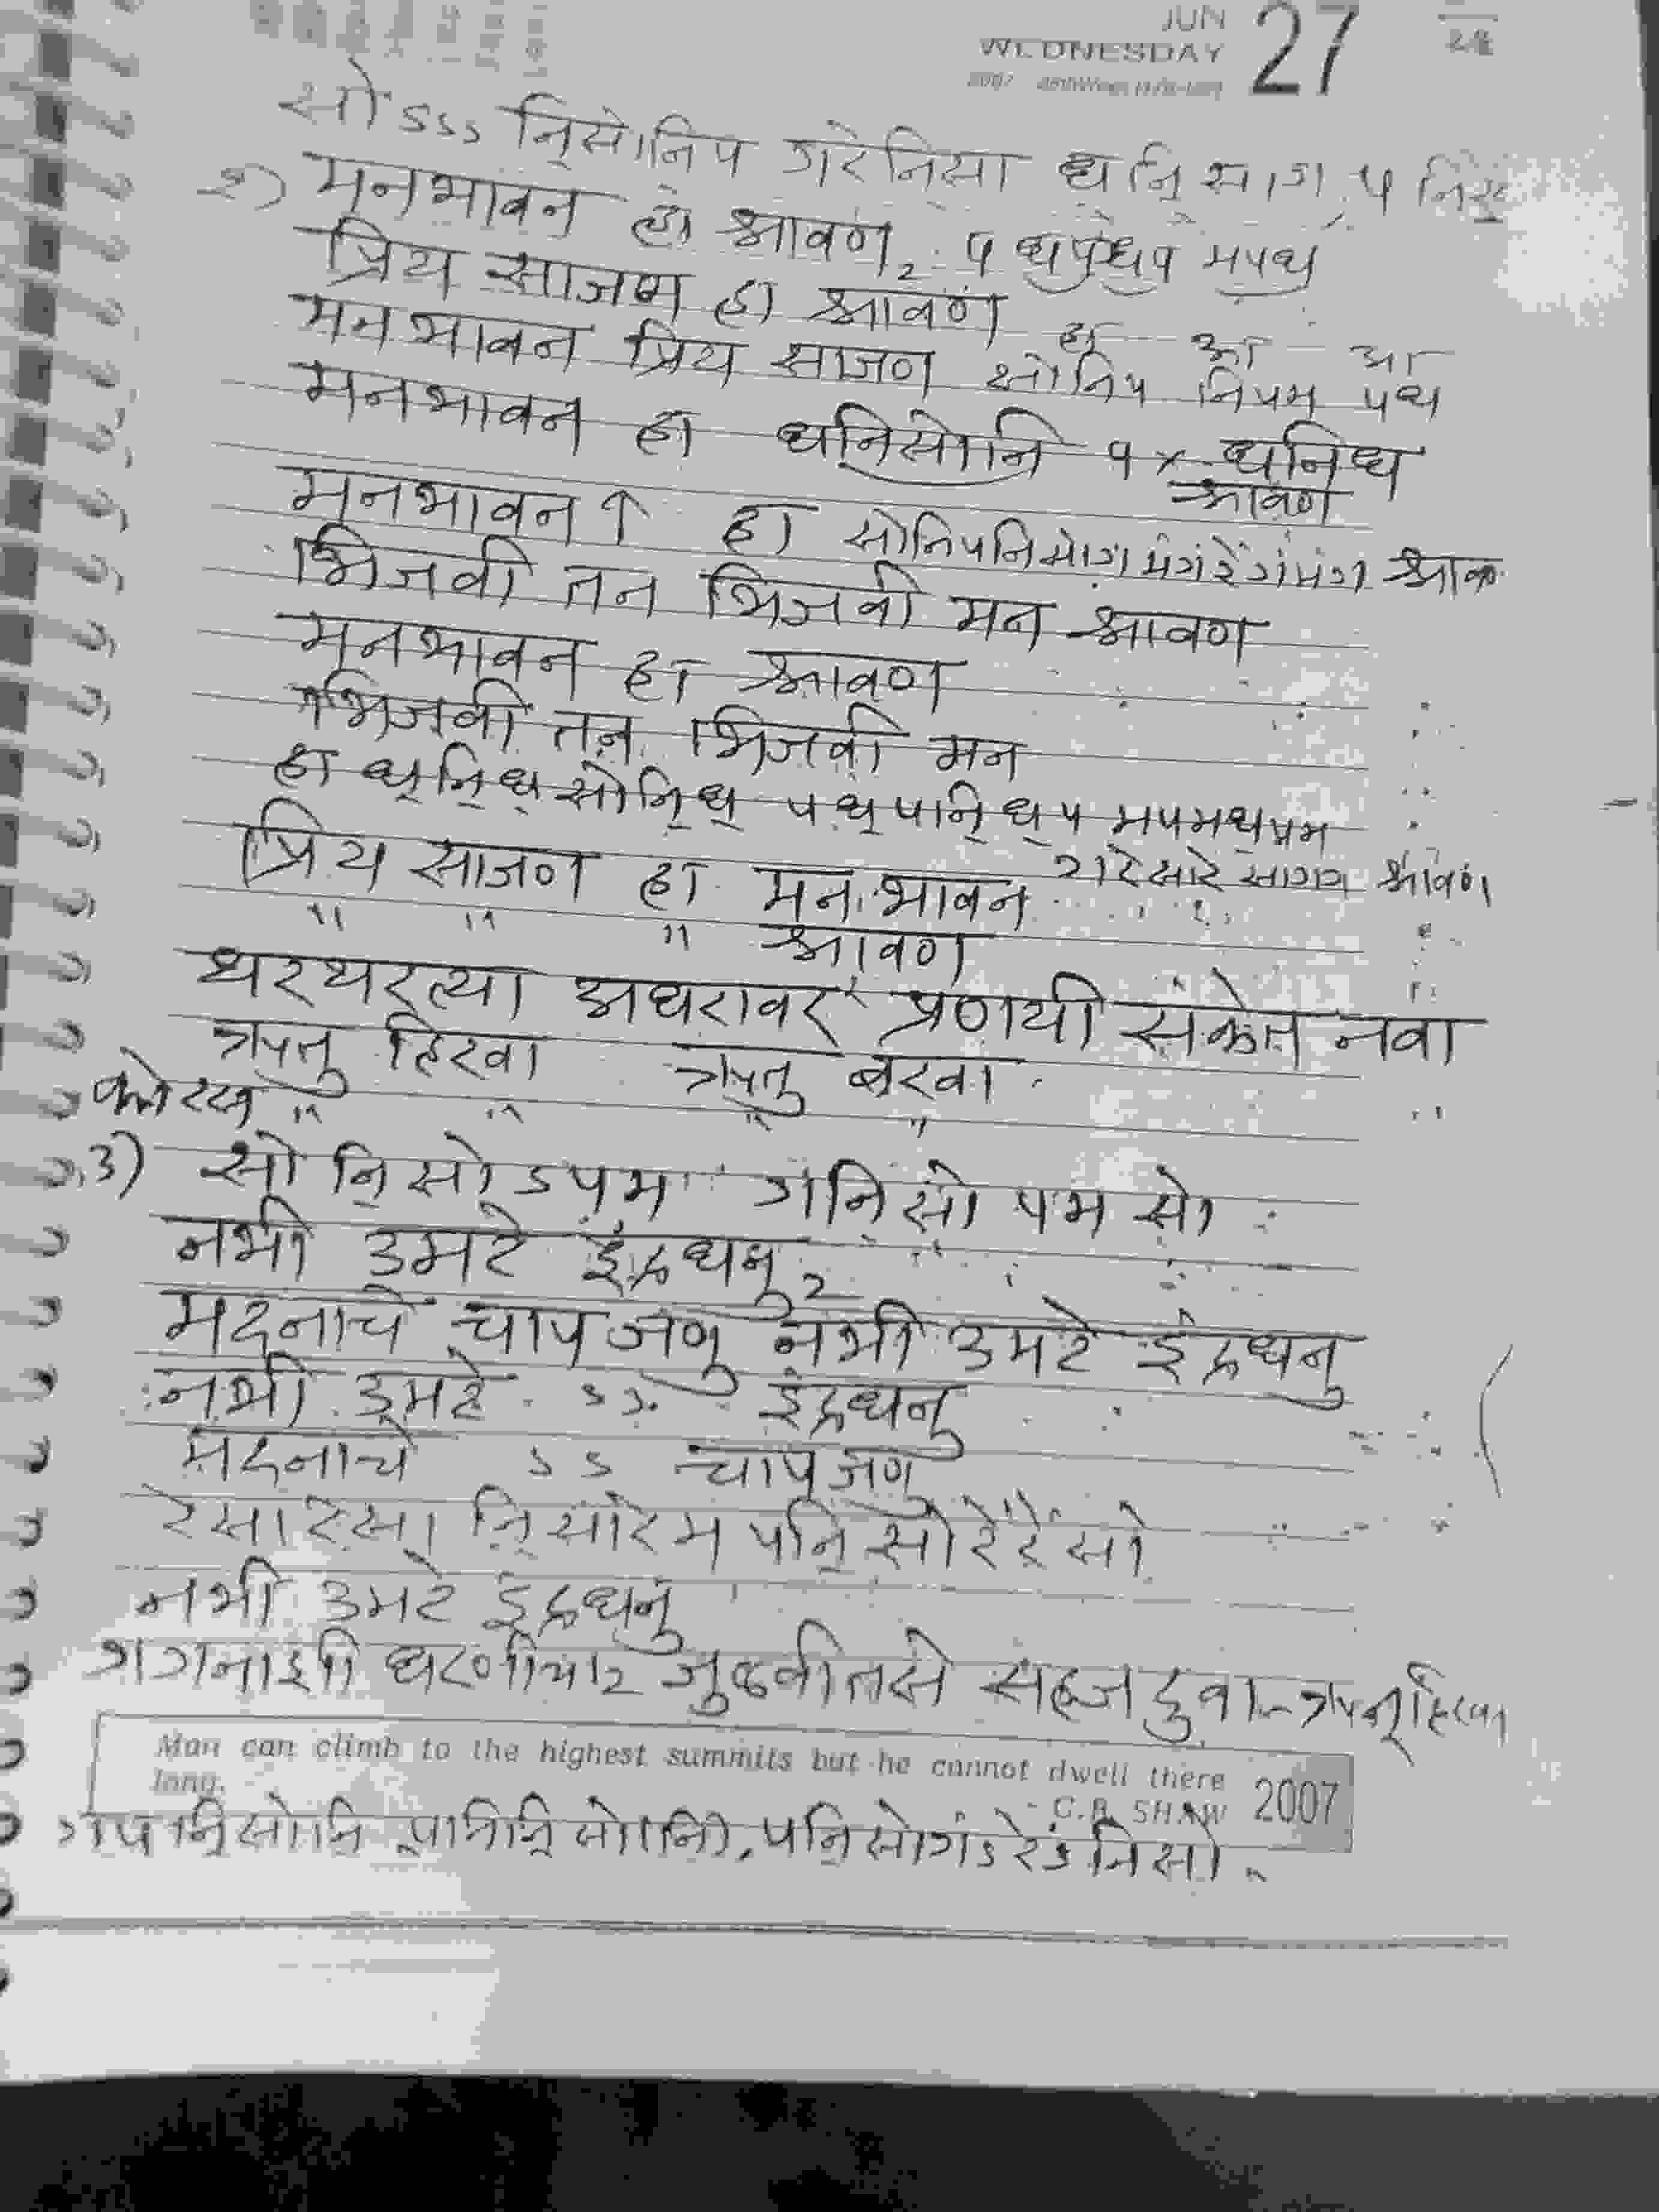 JUN
WEDNESDAY 27
सांऽऽऽ नि़सांनिप गरेनि़सा ध़नि़साग प
२) मनभावन हा श्रावण २ प धपधप मपध
प्रिय साजण हा श्रावण हा आ आ
मनभावन प्रिय साजण सांनिप निपम पध
मनभावन हा धनिसांनि प x धनिध
श्रावण
मनभावन ↑ हा सांनिपनिसांगं मंगंरेंगंमंगं
भिजवी तन भिजवी मन श्रावण
मनभावन हा श्रावण
भिजवी तन भिजवी मन
हा ध॒नि॒ध॒ सांनि॒ध॒ पध॒पनि॒ध॒प मपमध॒पम
गरेसारे सागग श्रावण
प्रिय साजण हा मनभावन
" " " श्रावण
थरथरत्या अधरावर प्रणयी संकेत नवा
ऋतु हिरवा ऋतु बरवा
कोरस " " " "
३) सां नि॒सांऽपम गनि॒सां पम सां
नभी उमटे इंद्रधनु २
मदनाचे चाप जणु नभी उमटे इंद्रधनु
नभी उमटे ऽऽ इंद्रधनु
मदनाचे ऽऽ चाप जणु
रेसारेसा नि़सारेम पनि॒सांरेंरेंसां
नभी उमटे इंद्रधनु
गगनाशी धरणीचा जुळवीतसे सहज दुवा - ऋतू हिरवा
Man can climb to the highest summits but he cannot dwell there
long.
- G.B. SHAW 2007
गपनि॒सांनि पनिनि॒सांनि, पनि॒सांगंऽरेंऽनिसां